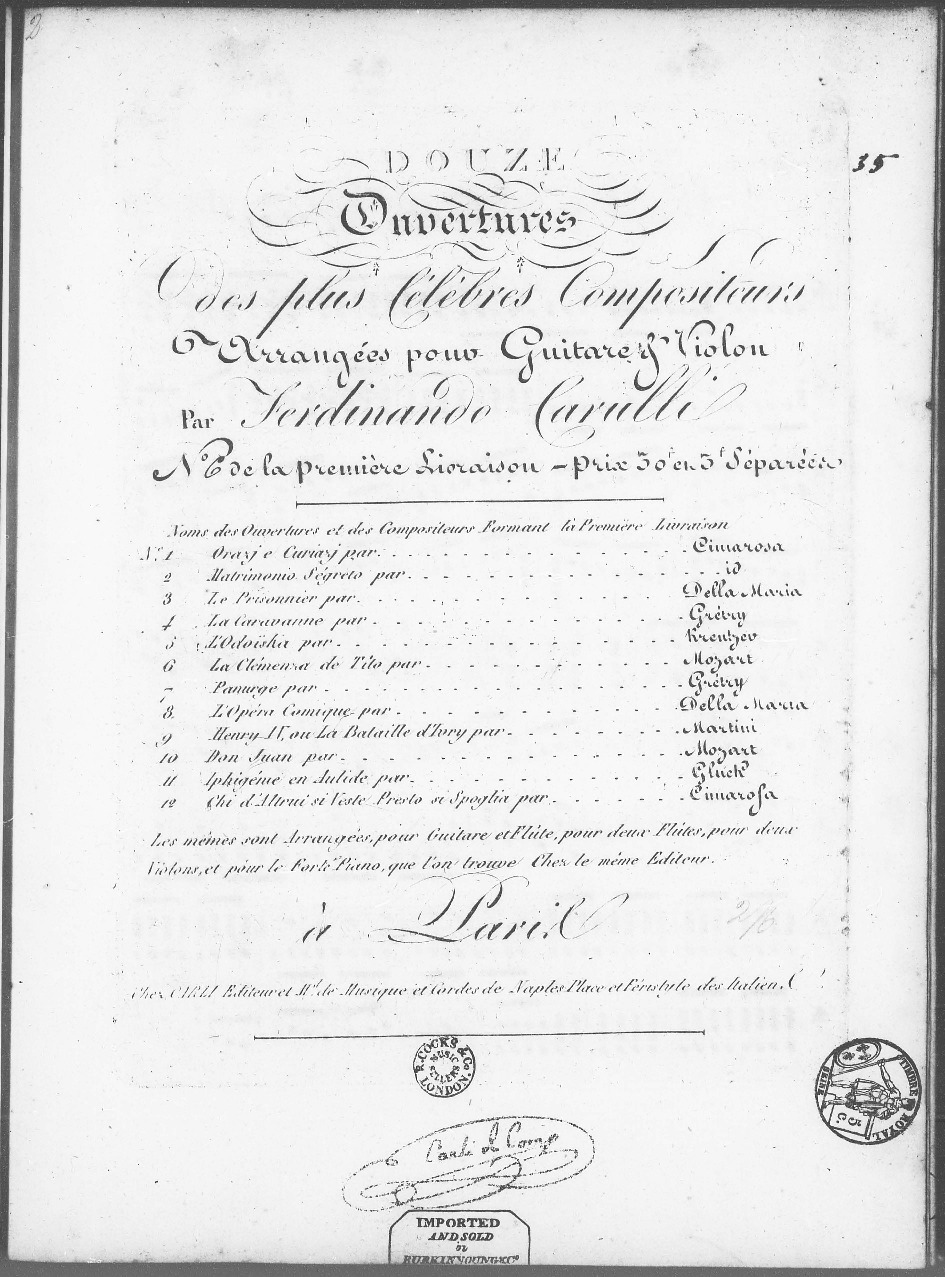 2
35
DOUZE
Ouvertures
des plus Célèbres Compositeurs
Arrangées pour Guitare & Violon
Par Ferdinando Carulli
N.º 6 de la première Livraison – prix 30ᶠ en 3ᶠ Séparées
Noms des Ouvertures et des Compositeurs Formant la Première Livraison
N.º 1 Orazj e Curiazj par. Cimarosa
2 Matrimonio Segreto par. id
3 Le Prisonnier par. Della Maria
4 La Caravanne par. Grétry
5 L'Odoiska par. Kreutzer
6 La Clémenza de Tito par. Mozart
7 Panurge par. Grétry
8 L'Opéra Comique par. Della Maria
9 Henry IV, ou La Bataille d'Ivry par. Martini
10 Don Juan par. Mozart
11 Iphigénie en Aulide par. Gluck
12 Chi d'Altrui si Veste Presto si Spoglia par. Cimarosa
Les mêmes sont Arrangées, pour Guitare et Flûte, pour deux Flûtes, pour deux
Violons, et pour le Forte Piano, que l'on trouve Chez le même Editeur.
à Paris
Chez CARLI Editeur et Md. de Musique et Cordes de Naples Place et Péristyle des Italiens
R. COCKS & Co.
MUSIC
SELLERS
LONDON.
TIMBRE ROYAL
SEINE
5 C
Carli & Comp
IMPORTED
AND SOLD
in